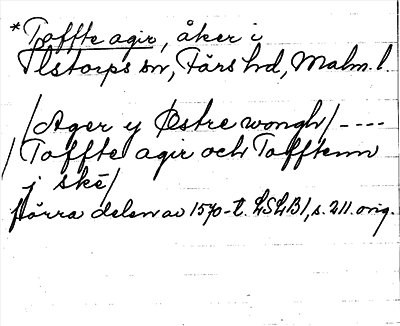 *Toffte agir, åker i
Ilstorps sn, Färs hd, Malm. l.
/Ager y Østre wongh/ ----
/Toffte agir och Tofftenn
j skē/
förra delen av 1570-t. LSLB1, s. 211. orig.